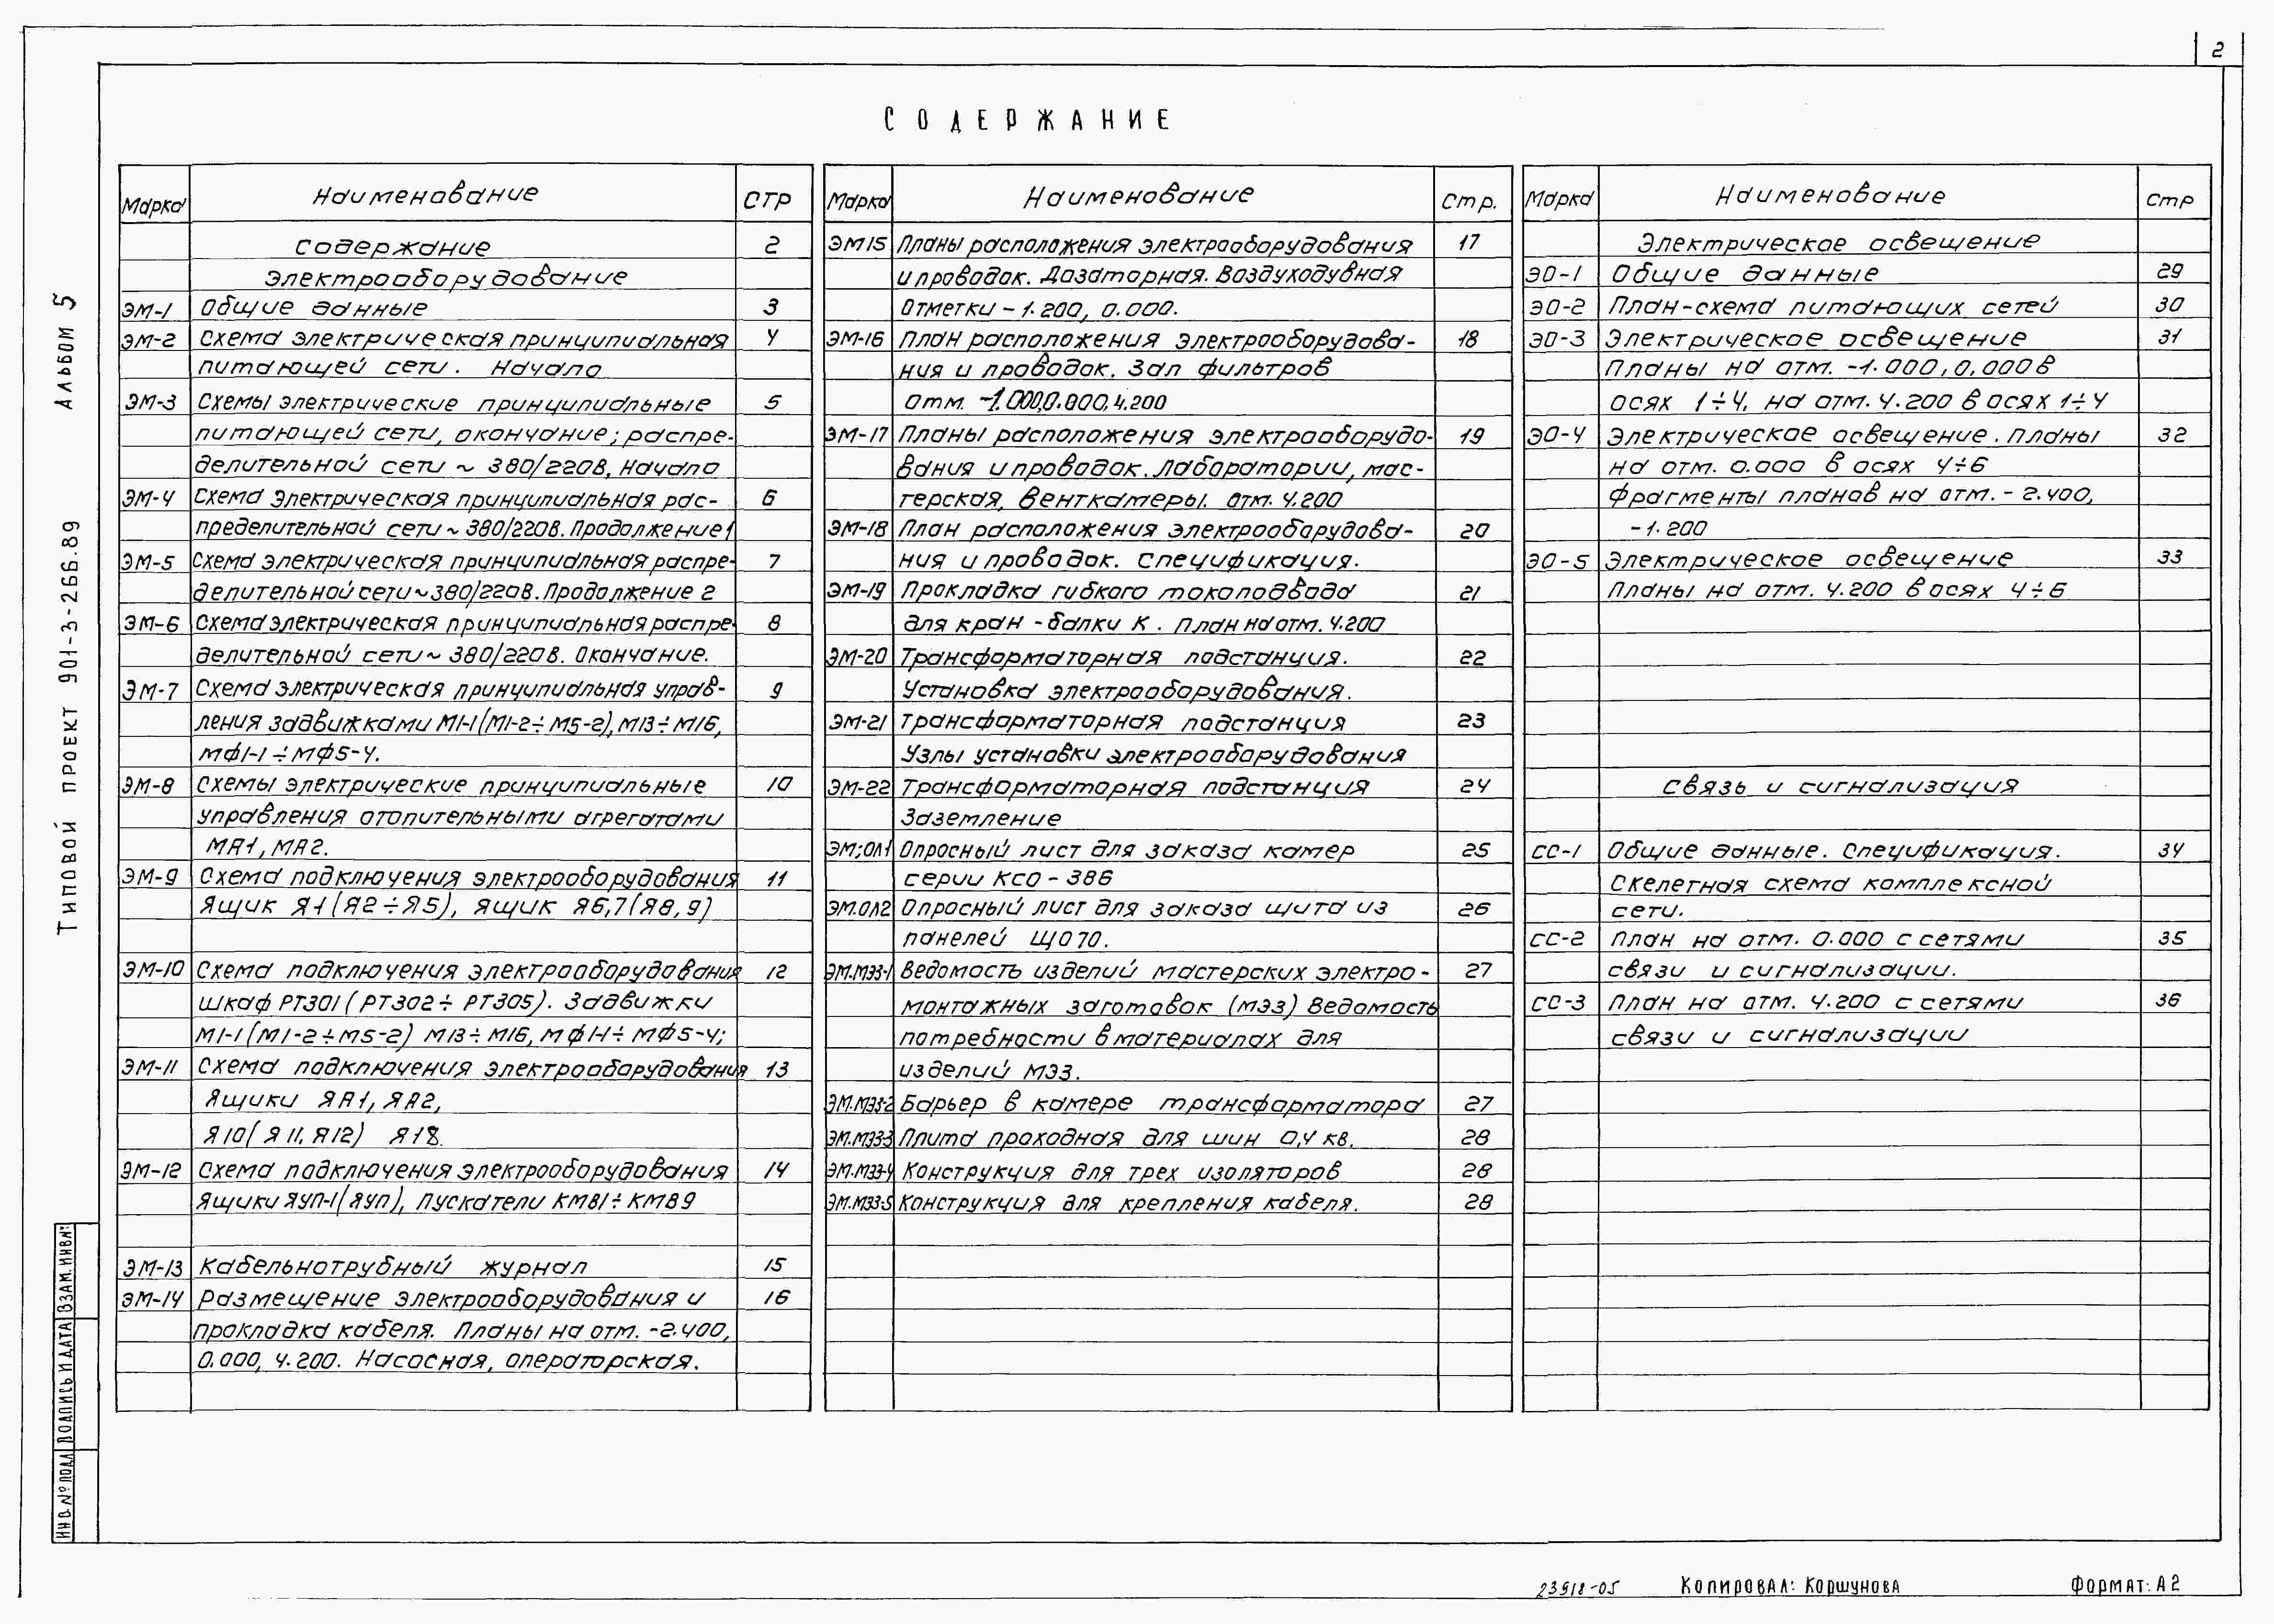 2
СОДЕРЖАНИЕ
Марка Наименование СТР
Содержание 2
Электрооборудование
ЭМ-1 Общие данные 3
ЭМ-2 Схема электрическая принципиальная 4
питающей сети. Начало
ЭМ-3 Схемы электрические принципиальные 5
питающей сети, окончание; распре-
делительной сети ~ 380/220В, Начало
ЭМ-4 Схема электрическая принципиальная рас- 6
пределительной сети ~ 380/220В. Продолжение 1
ЭМ-5 Схема электрическая принципиальная распре- 7
делительной сети ~ 380/220В. Продолжение 2
ЭМ-6 Схема электрическая принципиальная распре- 8
делительной сети ~ 380/220В. Окончание.
ЭМ-7 Схема электрическая принципиальная управ- 9
ления задвижками М1-1 (М1-2÷М5-2), М13÷М16,
МФ1-1÷МФ5-4.
ЭМ-8 Схемы электрические принципиальные 10
управления отопительными агрегатами
МА1, МА2.
ЭМ-9 Схема подключения электрооборудования 11
Ящик Я1 (Я2÷Я5), ящик Я6,7 (Я8,9)
ЭМ-10 Схема подключения электрооборудования 12
шкаф РТ301 (РТ302÷РТ305). Задвижки
М1-1 (М1-2÷М5-2) М13÷М16, МФ1-1÷МФ5-4;
ЭМ-11 Схема подключения электрооборудования 13
Ящики ЯА1, ЯА2,
Я10 (Я11, Я12) Я18.
ЭМ-12 Схема подключения электрооборудования 14
Ящики ЯУП-1 (ЯУП), Пускатели КМ81÷КМ89
ЭМ-13 Кабельнотрубный журнал 15
ЭМ-14 Размещение электрооборудования и 16
прокладка кабеля. Планы на отм. -2.400,
0.000, 4.200. Насосная, операторская.
Марка Наименование Стр.
ЭМ15 Планы расположения электрооборудования 17
и проводок. Дозаторная. Воздуходувная
Отметки -1.200, 0.000.
ЭМ-16 План расположения электрооборудова- 18
ния и проводок. Зал фильтров
отм. -1.000, 0.000, 4.200
ЭМ-17 Планы расположения электрооборудо- 19
вания и проводок. Лаборатории, мас-
терская, венткамеры. отм. 4.200
ЭМ-18 План расположения электрооборудова- 20
ния и проводок. Спецификация.
ЭМ-19 Прокладка гибкого токоподвода 21
для кран-балки К. План на отм. 4.200
ЭМ-20 Трансформаторная подстанция. 22
Установка электрооборудования.
ЭМ-21 Трансформаторная подстанция 23
Узлы установки электрооборудования
ЭМ-22 Трансформаторная подстанция 24
Заземление
ЭМ;ОЛ1 Опросный лист для заказа камер 25
серии КСО-386
ЭМ.ОЛ2 Опросный лист для заказа щита из 26
панелей ЩО70.
ЭМ.МЭЗ-1 Ведомость изделий мастерских электро- 27
монтажных заготовок (МЭЗ) Ведомость
потребности в материалах для
изделий МЭЗ.
ЭМ.МЭЗ-2 Барьер в камере трансформатора 27
ЭМ.МЭЗ-3 Плита проходная для шин 0,4 кв. 28
ЭМ.МЭЗ-4 Конструкция для трех изоляторов 28
ЭМ.МЭЗ-5 Конструкция для крепления кабеля. 28
Марка Наименование Стр
Электрическое освещение
ЭО-1 Общие данные 29
ЭО-2 План-схема питающих сетей 30
ЭО-3 Электрическое освещение 31
Планы на отм. -1.000, 0,000 в
осях 1÷4, на отм. 4.200 в осях 1÷4
ЭО-4 Электрическое освещение. Планы 32
на отм. 0.000 в осях 4÷6
Фрагменты планов на отм. -2.400,
-1.200
ЭО-5 Электрическое освещение 33
Планы на отм. 4.200 в осях 4÷6
Связь и сигнализация
СС-1 Общие данные. Спецификация. 34
Скелетная схема комплексной
сети.
СС-2 План на отм. 0.000 с сетями 35
связи и сигнализации.
СС-3 План на отм. 4.200 с сетями 36
связи и сигнализации
ТИПОВОЙ ПРОЕКТ 901-3-266.89 АЛЬБОМ 5
ИНВ. № ПОДЛ ПОДПИСЬ И ДАТА ВЗАМ. ИНВ.№
23918-05 КОПИРОВАЛ: КОРШУНОВА ФОРМАТ: А2